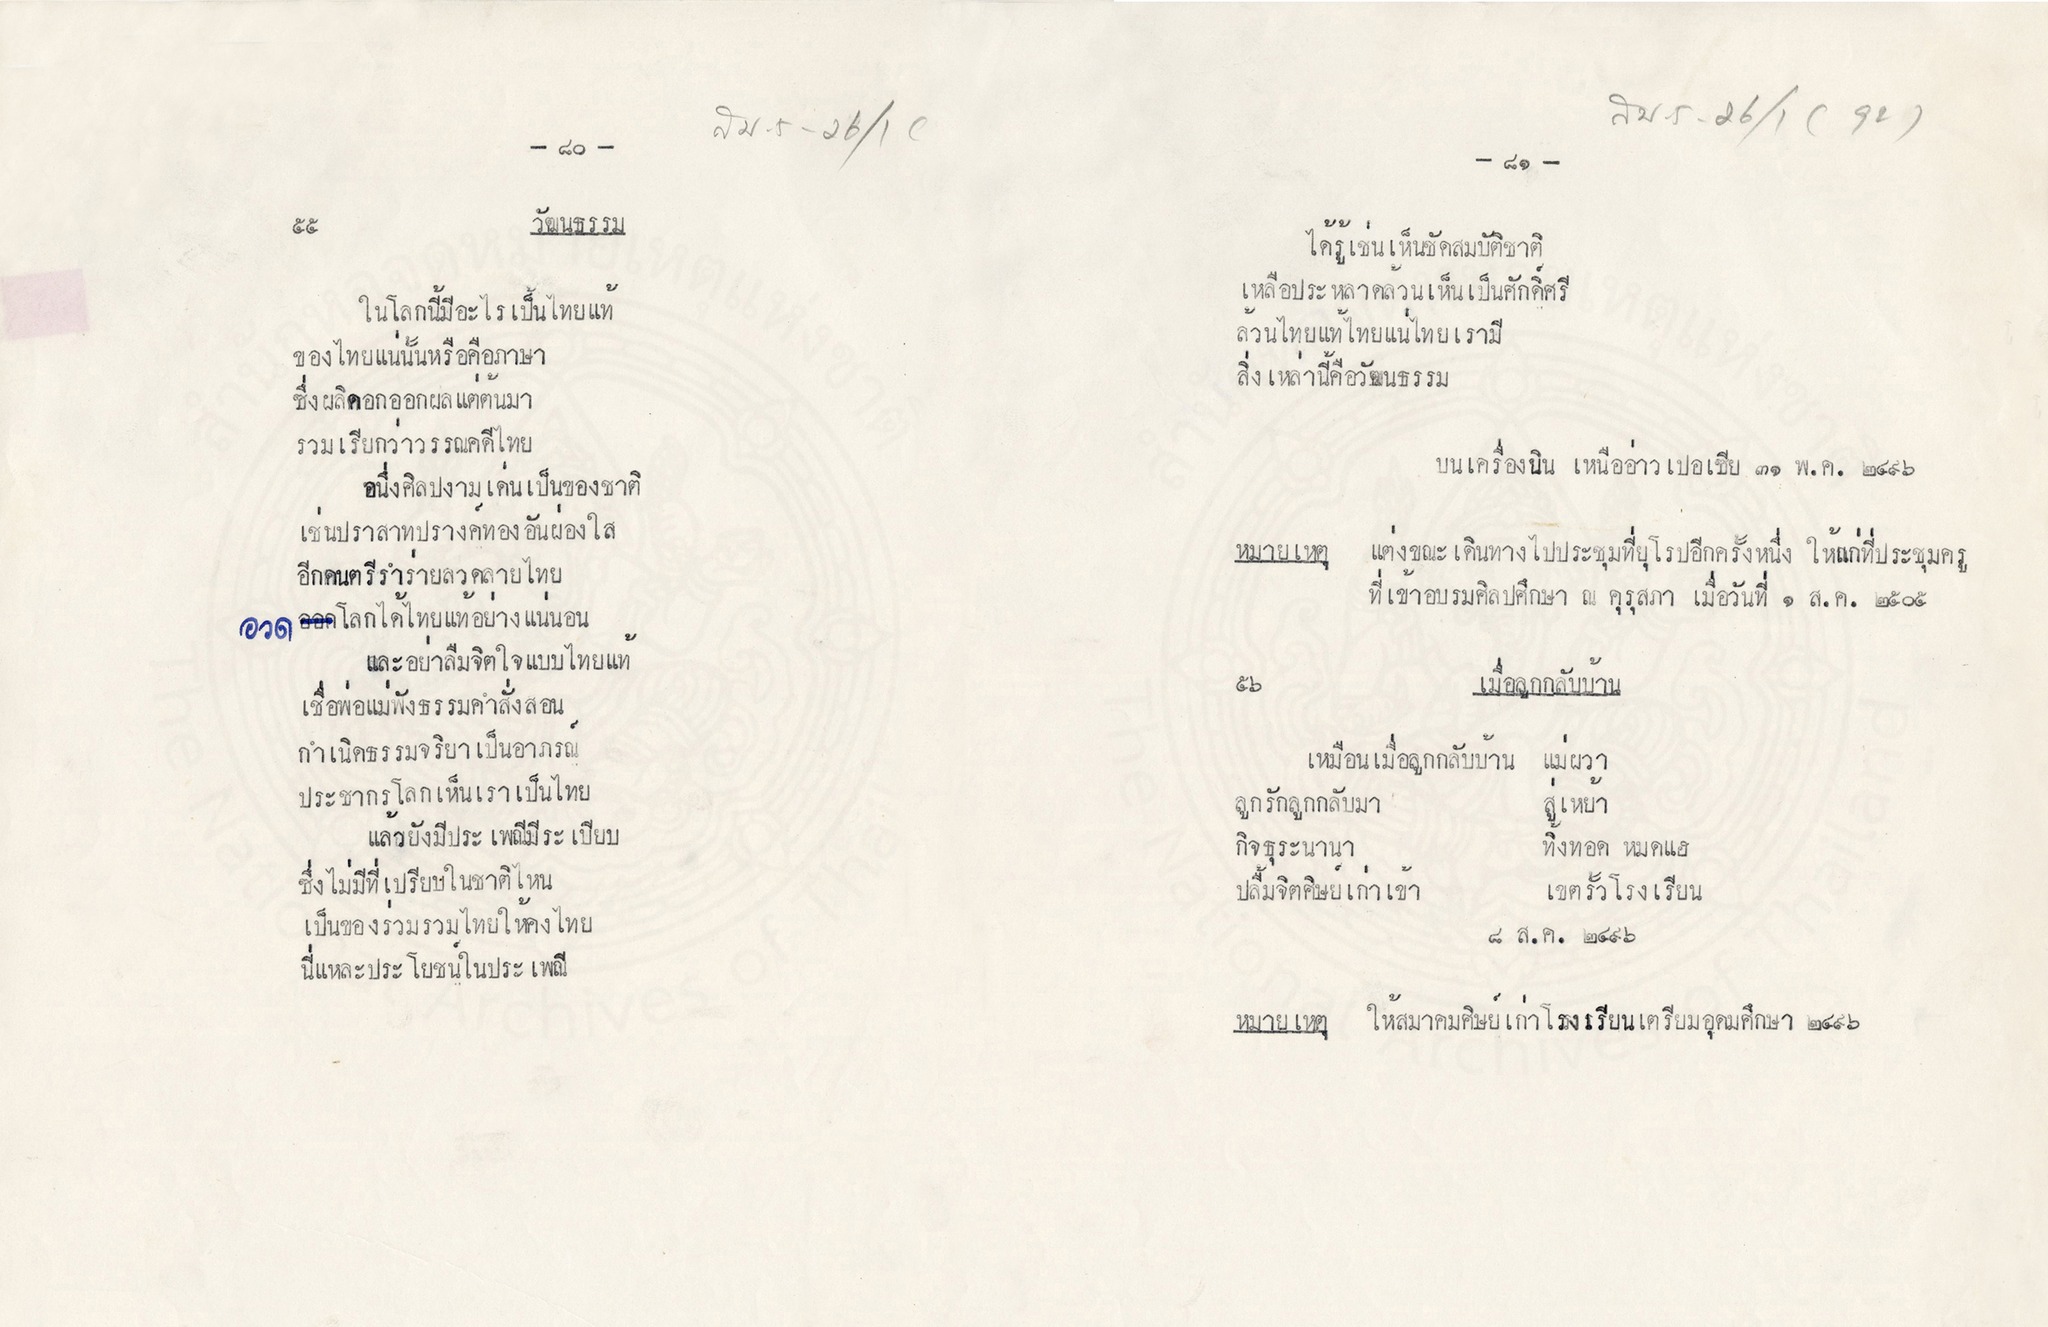 - ๘๐ -
๕๕ วัฒนธรรม
ในโลกนี้มีอะไรเป็นไทยแท้
ของไทยแน่นั้นหรือคือภาษา
ซึ่งผลิดอกออกผลแต่ต้นมา
รวมเรียกว่าวรรณคดีไทย
อนึ่งศิลปงามเด่นเป็นของชาติ
เช่นปราสาทปรางค์ทองอันผ่องใส
อีกดนตรีรำร่ายลวดลายไทย
อวด โลกได้ไทยแท้อย่างแน่นอน
และอย่าลืมจิตใจแบบไทยแท้
เชื่อพ่อแม่ฟังธรรมคำสั่งสอน
กำเนิดธรรมจริยาเป็นอาภรณ์
ประชากรโลกเห็นเราเป็นไทย
แล้วยังมีประเพณีมีระเบียบ
ซึ่งไม่มีที่เปรียบในชาติไหน
เป็นของร่วมรวมไทยให้คงไทย
นี่แหละประโยชน์ในประเพณี
สบ.ร-26/1 (92)
- ๘๑ -
ได้รู้เช่นเห็นชัดสมบัติชาติ
เหลือประหลาดล้วนเห็นเป็นศักดิ์ศรี
ล้วนไทยแท้ไทยแน่ไทยเรามี
สิ่งเหล่านี้คือวัฒนธรรม
บนเครื่องบิน เหนืออ่าวเปอเซีย ๓๑ พ.ค. ๒๔๙๖
หมายเหตุ แต่งขณะเดินทางไปประชุมที่ยุโรปอีกครั้งหนึ่ง ให้แก่ที่ประชุมครู
ที่เข้าอบรมศิลปศึกษา ณ คุรุสภา เมื่อวันที่ ๑ ส.ค. ๒๕๐๕
๕๖ เมื่อลูกกลับบ้าน
เหมือนเมื่อลูกกลับบ้าน แม่ผวา
ลูกรักลูกกลับมา สู่เหย้า
กิจธุระนานา ทิ้งทอด หมดแฮ
ปลื้มจิตศิษย์เก่าเข้า เขตรั้วโรงเรียน
๘ ส.ค. ๒๔๙๖
หมายเหตุ ให้สมาคมศิษย์เก่าโรงเรียนเตรียมอุดมศึกษา ๒๔๙๖